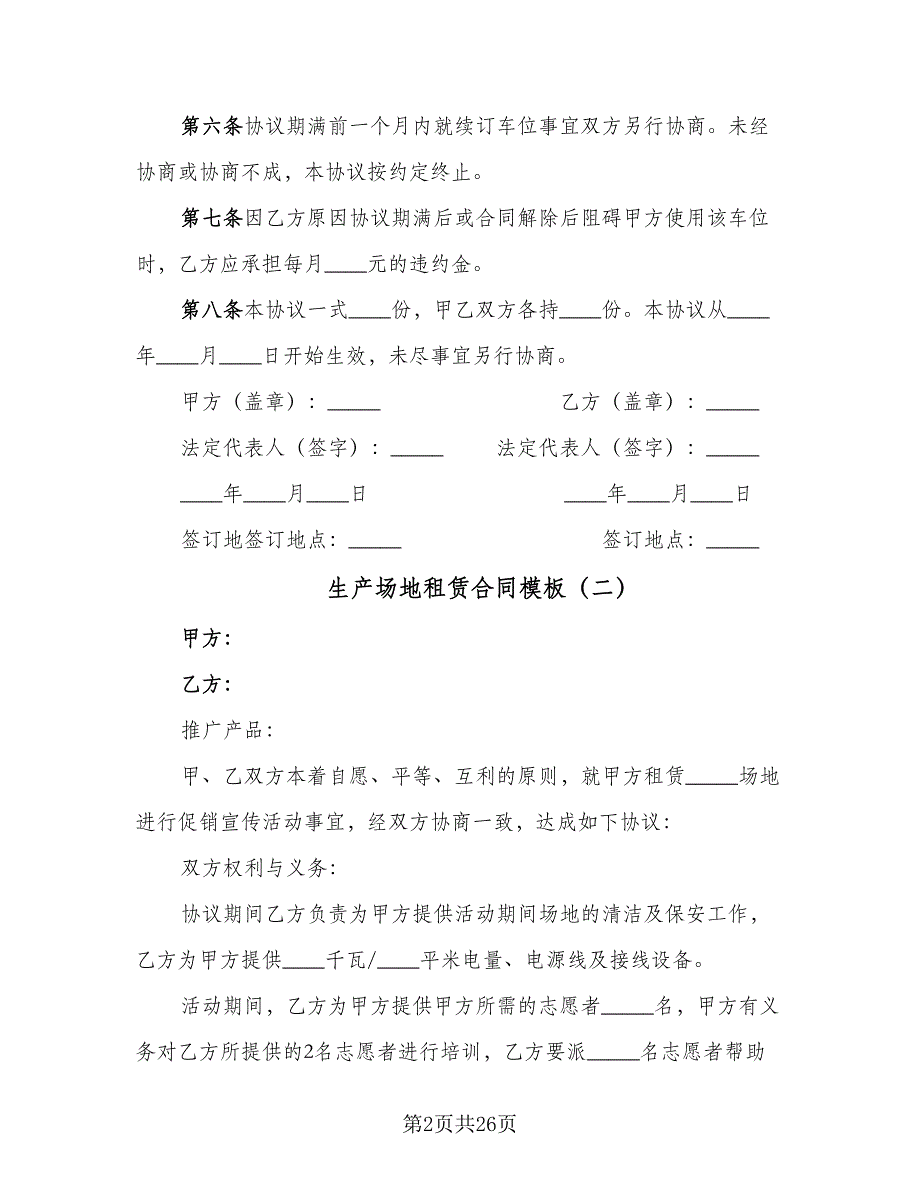 第六条协议期满前一个月内就续订车位事宜双方另行协商。未经
协商或协商不成，本协议按约定终止。
第七条因乙方原因协议期满后或合同解除后阻碍甲方使用该车位
时，乙方应承担每月____元的违约金。
第八条本协议一式____份，甲乙双方各持____份。本协议从____
年____月____日开始生效，未尽事宜另行协商。
甲方（盖章）：_____ 乙方（盖章）：_____
法定代表人（签字）：_____ 法定代表人（签字）：_____
____年____月____日 ____年____月____日
签订地签订地点：_____ 签订地点：_____
生产场地租赁合同模板（二）
甲方：
乙方：
推广产品：
甲、乙双方本着自愿、平等、互利的原则，就甲方租赁_____场地
进行促销宣传活动事宜，经双方协商一致，达成如下协议：
双方权利与义务：
协议期间乙方负责为甲方提供活动期间场地的清洁及保安工作，
乙方为甲方提供____千瓦/____平米电量、电源线及接线设备。
活动期间，乙方为甲方提供甲方所需的志愿者_____名，甲方有义
务对乙方所提供的2名志愿者进行培训，乙方要派_____名志愿者帮助
第2页共26页